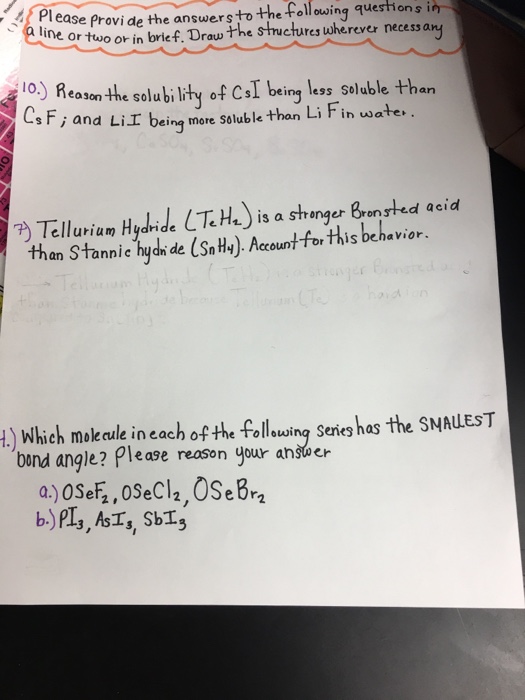 Please Provide the answers to the following questions in
a line or two or in brief. Draw the structures wherever necessary
10.) Reason the solubility of CsI being less soluble than
CsF; and LiI being more soluble than LiF in water.
7) Tellurium Hydride (TeH2) is a stronger Bronsted acid
than Stannic hydride (SnH4). Account for this behavior.
4.) Which molecule in each of the following series has the SMALLEST
bond angle? Please reason your answer
a.) OSeF2, OSeCl2, OSeBr2
b.) PI3, AsI3, SbI3